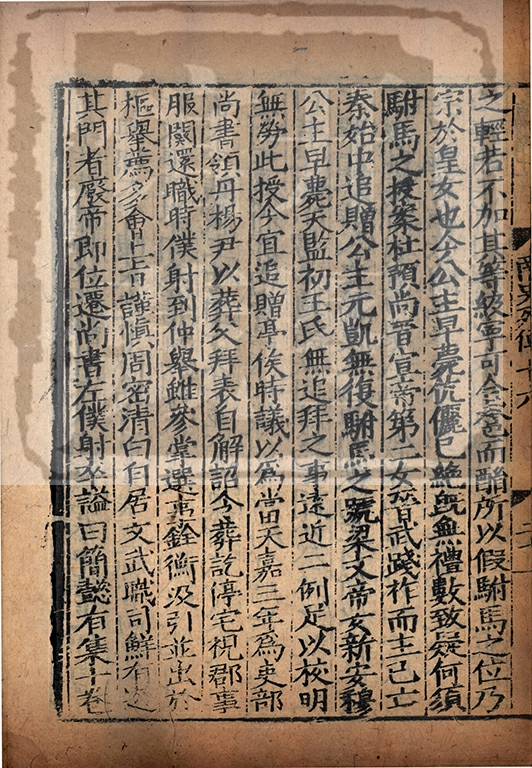 之輕若不加其等級寧可合卺而酳所以假駙馬之位乃
宗於皇女也今公主早薨伉儷已絶旣無禮數致疑何須
駙馬之授案杜預尚晉宣帝第二女晉武踐祚而主已亡
泰始中追贈公主元凱無復駙馬之號梁文帝女新安穆
公主早薨天監初王氏無追拜之事遠近二例足以校明
無勞此授今宜追贈亭侯時議以爲當天嘉三年爲吏部
尚書領丹楊尹以葬父拜表自解詔令葬訖停宅視郡事
服闋還職時僕射到仲舉雖參掌選事銓衡汲引並出於
樞舉薦多會上旨謹愼周密清白自居文武職司鮮有遊
其門者廢帝即位遷尚書左僕射卒謚曰簡懿有集十卷